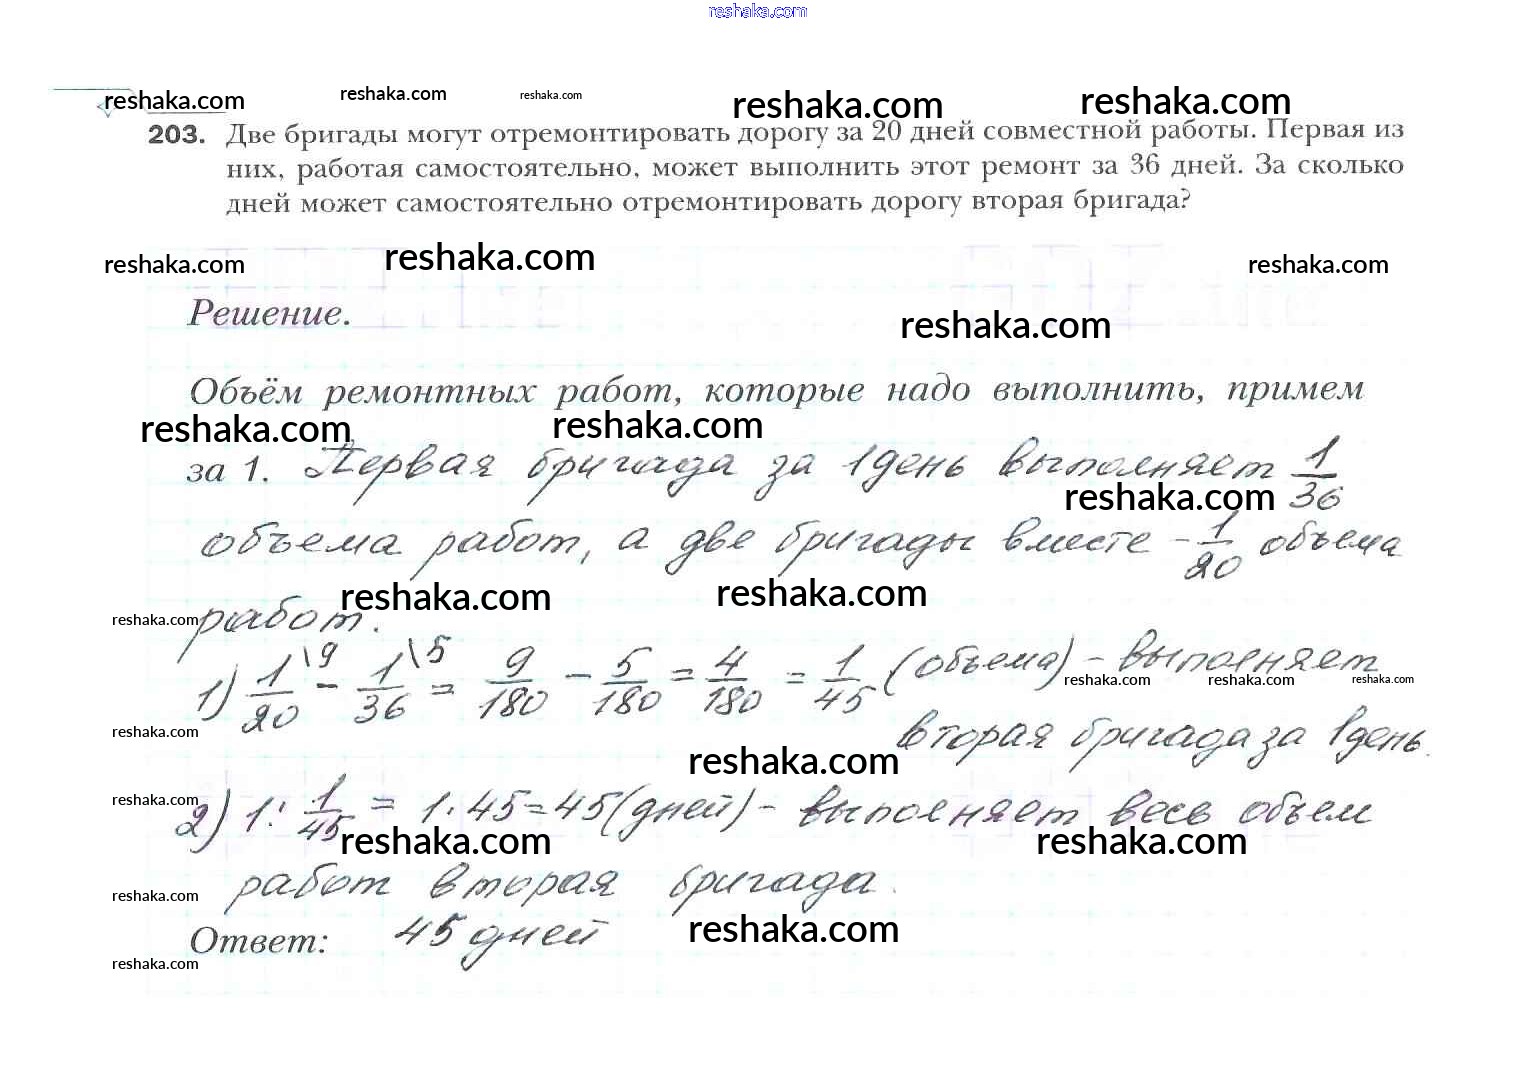 reshaka.com
reshaka.com reshaka.com reshaka.com reshaka.com reshaka.com
203. Две бригады могут отремонтировать дорогу за 20 дней совместной работы. Первая из
них, работая самостоятельно, может выполнить этот ремонт за 36 дней. За сколько
дней может самостоятельно отремонтировать дорогу вторая бригада?
reshaka.com reshaka.com reshaka.com
Решение.
reshaka.com
Объём ремонтных работ, которые надо выполнить, примем
reshaka.com reshaka.com
за 1. Первая бригада за 1 день выполняет 1/36
reshaka.com
объема работ, а две бригады вместе - 1/20 объема
reshaka.com reshaka.com
reshaka.com
работ.
1) 1/20 \9 - 1/36 \5 = 9/180 - 5/180 = 4/180 = 1/45 (объема) - выполняет
reshaka.com reshaka.com reshaka.com
вторая бригада за 1 день.
reshaka.com
reshaka.com
2) 1 : 1/45 = 1 · 45 = 45 (дней) - выполняет весь объем
reshaka.com
reshaka.com reshaka.com
работ вторая бригада.
reshaka.com
reshaka.com
Ответ: 45 дней
reshaka.com